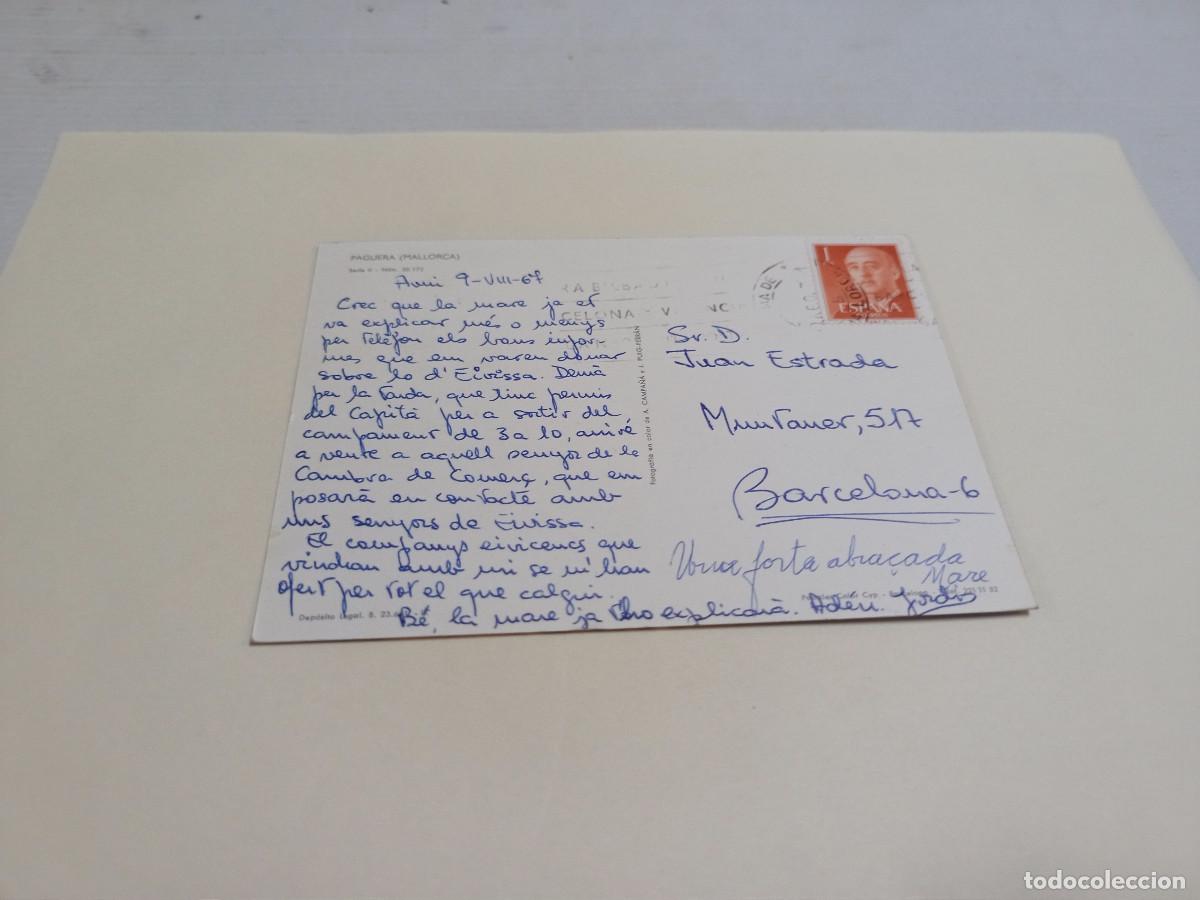 PAGUERA (MALLORCA)
Serie II - Núm.
Avui 9-VIII-67
Crec que la mare ja et
va explicar més o menys
per telèfon els bons infor-
mes que em varen donar
sobre lo d'Eivissa. Demà
per la tarda, que tinc permís
del Capità per a sortir del
campament de 3 a 10, aniré
a veure a aquell senyor de la
Cambra de Comerç, que em
posarà en contacte amb
uns senyors de Eivissa.
El companys eivicencs que
vindran amb mi se m'han
ofert per tot el que calgui.
Bé, la mare ja t'ho explicarà. Adéu. Jordi
Una forta abraçada
Mare
ESPAÑA
CELONA
Sr. D.
Juan Estrada
Muntaner, 517
Barcelona-6
Fotografía en color de A. CAMPAÑÁ e J. PUIG-FERRÁN
Depósito Legal. B. 23.
todocoleccion